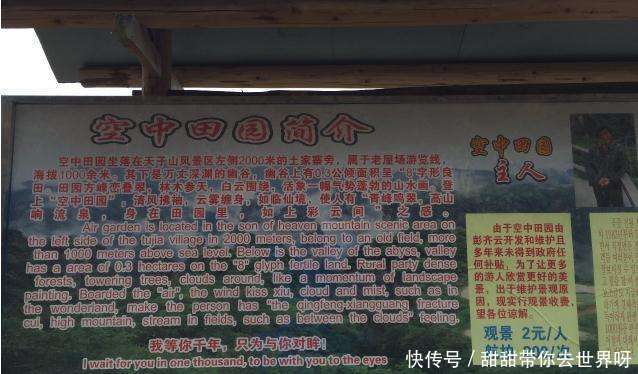 空中田园简介
空中田园坐落在天子山风景区左侧2000米的土家寨旁，属于老屋场游览线，
海拔1000余米。其下是万丈深渊的幽谷，幽谷上有0.3公倾面积呈“8”字形良
田。田园方峰峦叠翠，林木参天，白云围绕，活象一幅气势蓬勃的山水画。登
上“空中田园”，清风拂袖，云雾缠身，如临仙境，使人有“青峰鸣翠，高山
响流泉，身在田园里，如上彩云间”之感。
Air garden is located in the son of heaven mountain scenic area on
the left side of the tujia village in 2000 meters, belong to an old field, more
than 1000 meters above sea level. Below is the valley of the abyss, valley
has a area of 0.3 hectares on the "8" glyph fertile land. Rural party dense
forests, towering trees, clouds around, like a momentum of landscape
painting. Boarded the "air", the wind kiss xiu, cloud and mist, such as in
the wonderland, make the person has "the qingfeng-xiangguang fracture
cui, high mountain, stream in fields, such as between the clouds" feeling.
我等你千年，只为与你对眸！
I wait for you in one thousand, to be with you to the eyes
空中田园
主人
由于空中田园由
彭齐云开发和维护且
多年来未得到政府任
何补贴，为了让更多
的游人欣赏更好的美
景，出于维护景观原
因，现实行观景收费，
望各位谅解。
观景 2元/人
快传号 / 甜甜带你去世界呀